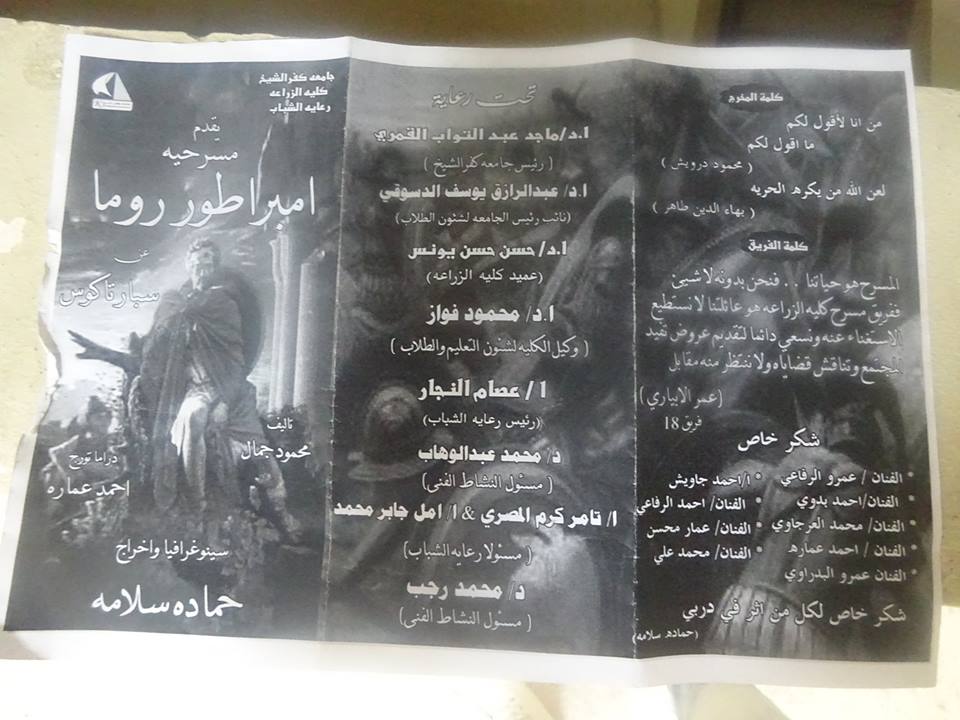 جامعه كفر الشيخ
كليه الزراعه
رعايه الشباب
يقدم
مسرحيه
امبراطور روما
عن
سبارتاكوس
تاليف
محمود جمال
دراما تورج
احمد عماره
سينوغرافيا واخراج
حماده سلامه
تحت رعاية
ا.د/ماجد عبد التواب القمري
( رئيس جامعه كفر الشيخ )
ا.د/ عبدالرازق يوسف الدسوقي
(نائب رئيس الجامعه لشئون الطلاب)
ا.د/ حسن حسن يونس
(عميد كليه الزراعه)
ا.د/ محمود فواز
( وكيل الكليه لشئون التعليم والطلاب )
ا / عصام النجار
(رئيس رعايه الشباب)
د/ محمد عبدالوهاب
( مسئول النشاط الفنى )
ا/ تامر كرم المصري & ا/ امل جابر محمد
( مسئولا رعايه الشباب)
د/ محمد رجب
( مسئول النشاط الفنى )
كلمة المخرج
من انا لأقول لكم
ما اقول لكم
( محمود درويش )
لعن الله من يكره الحريه
( بهاء الدين طاهر )
كلمة الفريق
المسرح هو حياتنا . . فنحن بدونه لا شيئ
ففريق مسرح كليه الزراعه هو عائلتنا لا نستطيع
الاستغناء عنه ونسعي دائما لتقديم عروض تفيد
المجتمع وتناقش قضاياه ولا ننتظر منه مقابل
(عمر الابياري )
فريق 18
شكر خاص
* الفنان / عمرو الرفاعي
* ا/احمد جاويش
* الفنان/احمد بدوي
* الفنان/ احمد الرفاعي
* الفنان/ محمد العرجاوي
* الفنان/ عمار محسن
* الفنان / احمد عماره
* الفنان/ محمد علي
* الفنان عمرو البدراوي
شكر خاص لكل من اثر في دربي
(حماده سلامه)